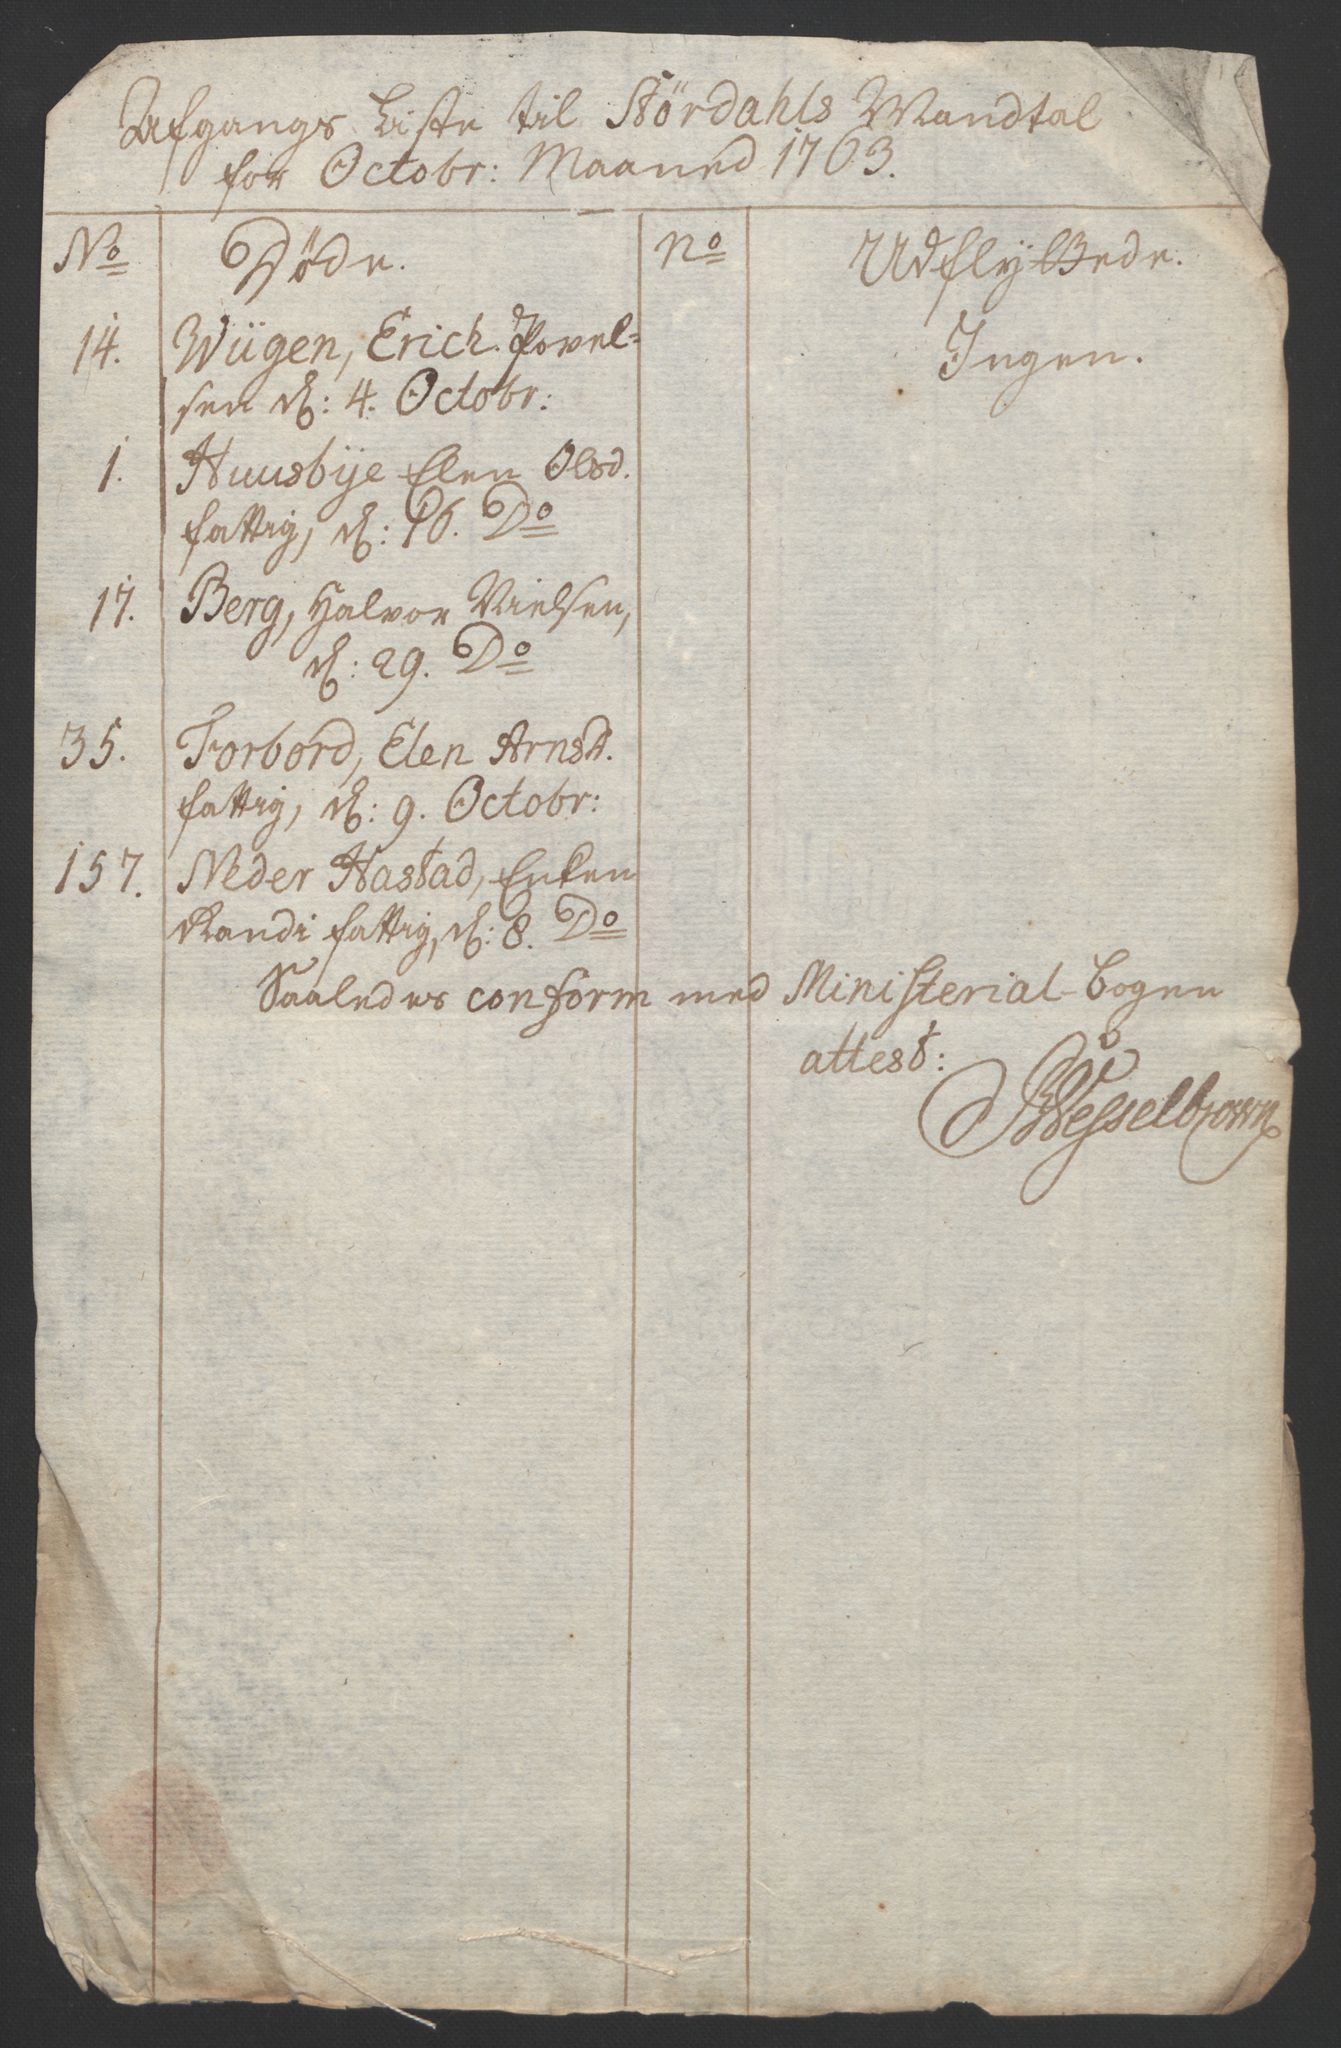 Afgangs Liste til Stördahls Mandtal
for Octobr: Maaned 1763.
No Döde. No Udflyttede.
14. Wiigen, Erich Povel= Ingen.
sen d: 4. Octobr:
1. Huusbye Elen Olsd.
fattig, d: 16. Do
17. Berg, Halvor Nielsen,
d: 29. Do
35. Forbord, Elen Arnsd.
fattig, d: 9. Octobr:
157. Neder Hastad, Enken
Randi fattig, d: 8. Do
Saaledes conform med Ministerial-bogen
attest:
Wesselbrown